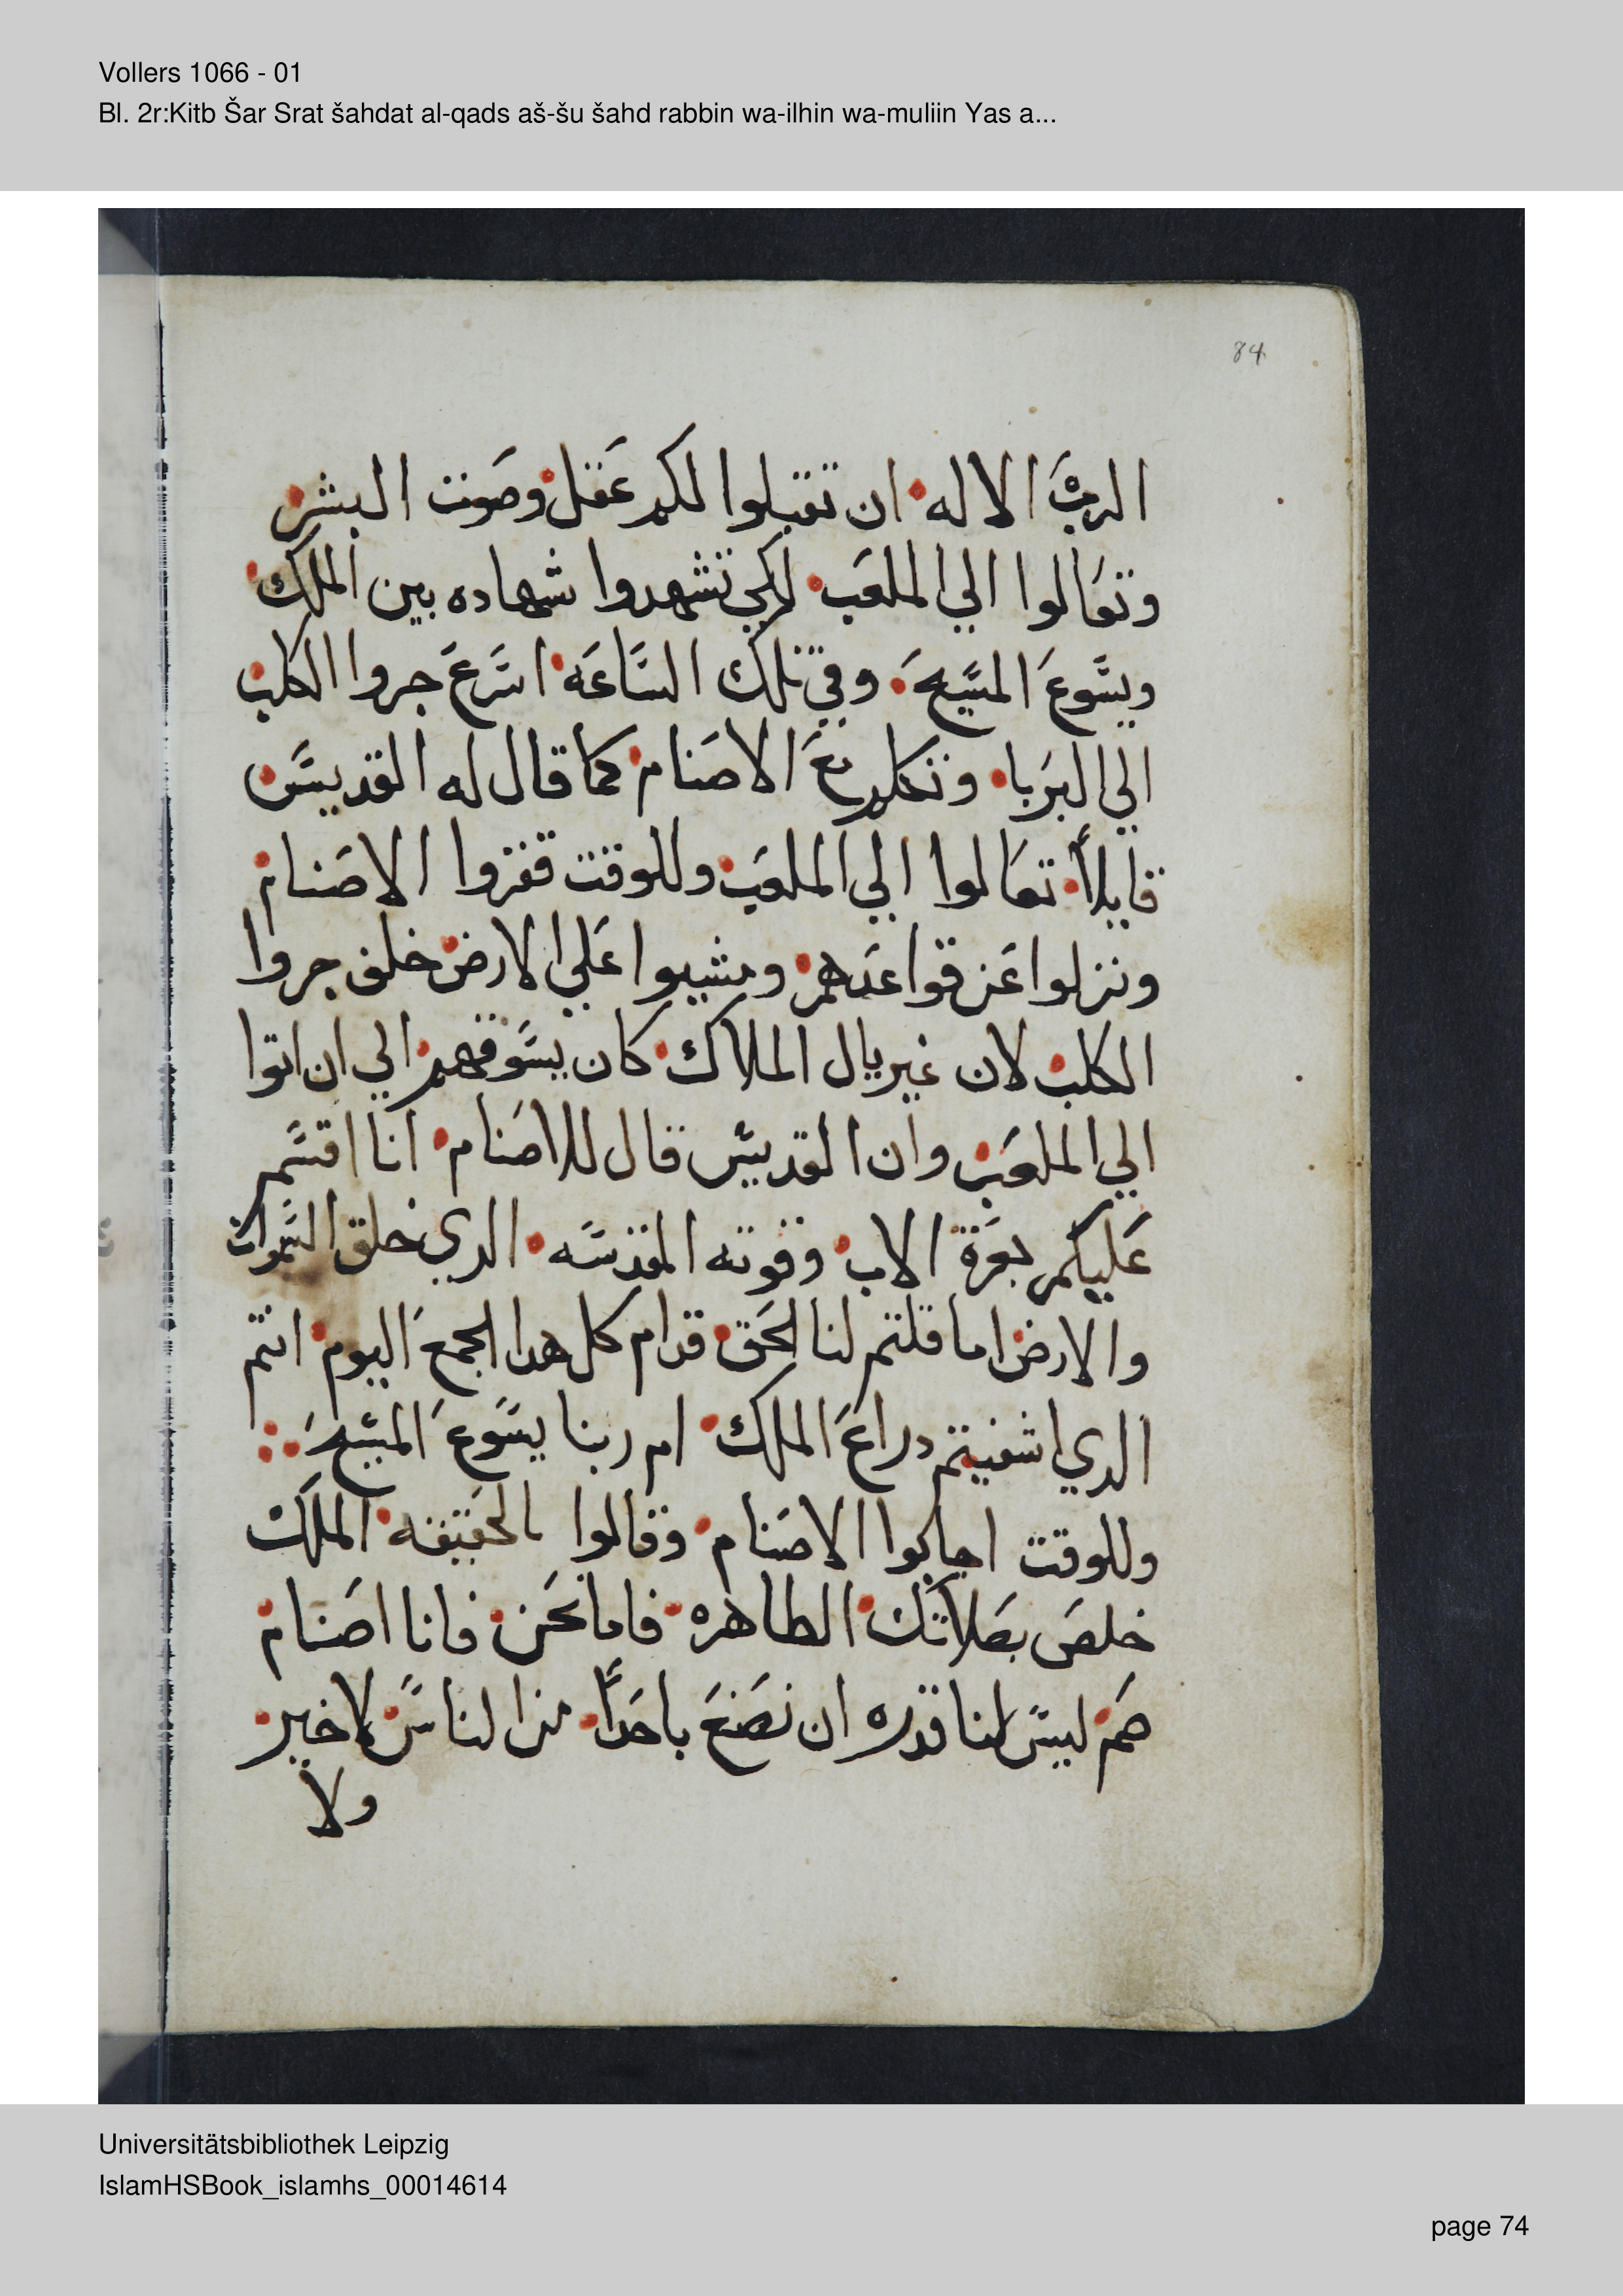 Vollers 1066 - 01
Bl. 2r:Kitb Šar Srat šahdat al-qads aš-šu šahd rabbin wa-ilhin wa-muliin Yas a...
84
الربَّ الاله ان تقبلوا لكم عَقل وصَوت البشر
وتعَالوا الي الملعَب لكي تشهدوا شهاده بين الملك
ويسَوعَ المسَيحَ وفي تلك السَاعَه اسَرعَ جروا الكلب
الي البَربا وتكلم معَ الاصَنام كما قال له القديسَ
قايلاً تعَالوا الي الملعَب وللوقت قفزوا الاصَنام
ونزلوا عَن قواعَدهم ومشيوا عَلي الارض خلف جروا
الكلب لان غبريال الملاك كان يسَوقهم الي ان اتوا
الي الملعَب وان القديس قال للاصَنام انا اقسَم
عَليكم بعَزة الاب وقوته المقدسَه الدي خلق السَموات
والارض اما قلتم لنا الحَق قدام كل هدا الجمعَ اليوم انتم
الدي اشفيتم دراعَ الملك ام ربنا يسَوعَ المسَيحَ
وللوقت اجابوا الاصَنام وقالوا بالحَقيقه الملك
خلصَ بصَلاتك الطاهره فاما نحَن فانا اصَنام
صَم ليسَ لنا قدره ان نصَنعَ باحَداً من الناسَ لا خير
ولا
Universitätsbibliothek Leipzig
IslamHSBook_islamhs_00014614
page 74